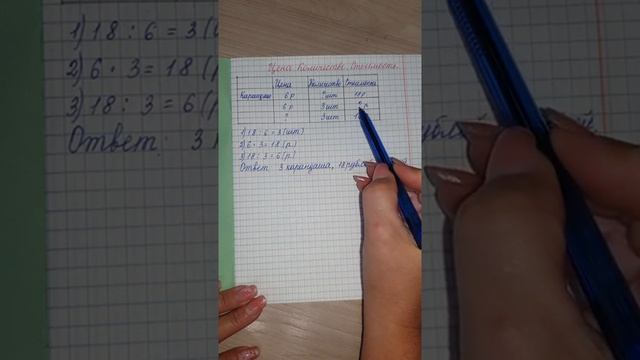 Цена. Количество. Стоимость.
Цена Количество Стоимость
Карандаши 6 р ? шт 18 р
6 р 3 шт ? р
? 3 шт
1) 18 : 6 = 3 (шт.)
2) 6 · 3 = 18 (р.)
3) 18 : 3 = 6 (р.)
Ответ: 3 карандаша, 18 рубл
1) 18 : 6 = 3 (
2) 6 · 3 = 18 (р
3) 18 : 3 = 6 (р.
Ответ: 3